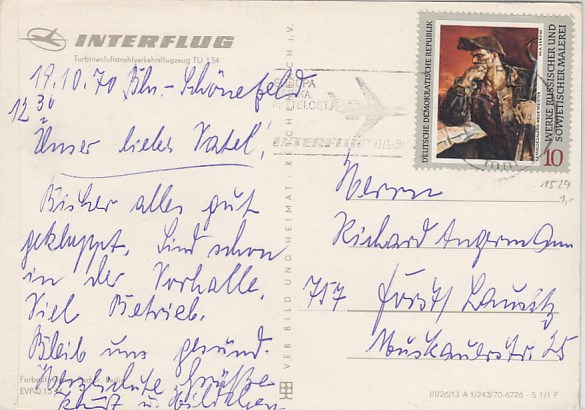 INTERFLUG
Turbinenluftstrahlverkehrsflugzeug TU 134
19.10.70 Bln.-Schönefeld
12 30
Unser lieber Vatel!
Bisher alles gut
geklappt. Sind schon
in der Vorhalle.
Viel Betrieb.
Bleib uns gesund.
Herzlichste Grüße
EVP
VEB BILD UND HEIMAT REICHENBACH I.V.
INTERFLUG
DEUTSCHE DEMOKRATISCHE REPUBLIK
WERKE RUSSISCHER UND
SOWJETISCHER MALEREI
10
1529
1,-
Herrn
Richard Angermann
757 Forst/Lausitz
Muskauerstr. 25
III/26/13 A 1/243/70-6726 S 1/1 F